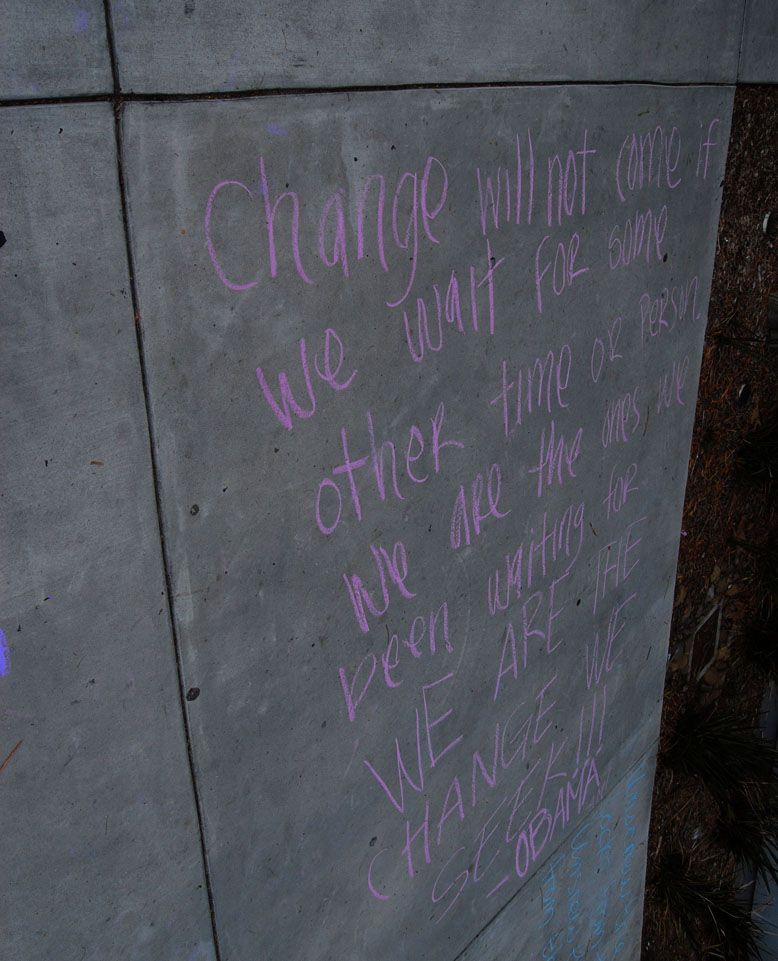 Change will not come if
we wait for some
other time or person.
We are the ones we
been waiting for
WE ARE THE
CHANGE WE
SEEK!!!
- OBAMA